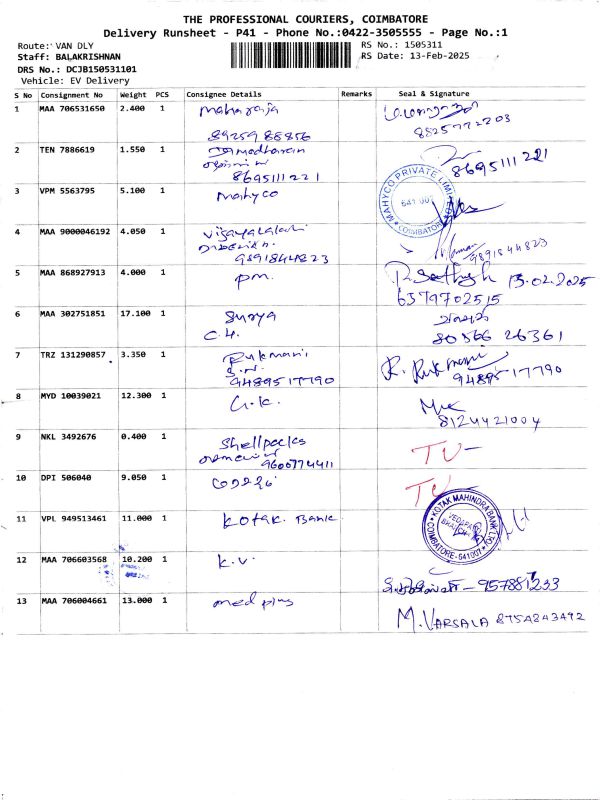 THE PROFESSIONAL COURIERS, COIMBATORE
Delivery Runsheet - P41 - Phone No.:0422-3505555 - Page No.:1
Route: VAN DLY
RS No.: 1505311
Staff: BALAKRISHNAN
RS Date: 13-Feb-2025
DRS No.: DCJB150531101
Vehicle: EV Delivery
S No Consignment No Weight PCS Consignee Details Remarks Seal & Signature
1 MAA 706531650 2.400 1 Maharaja
8925988856
8825772203
2 TEN 7886619 1.550 1
8695111221
8695111221
3 VPM 5563795 5.100 1 Mahyco
MAHYCO PRIVATE LIMITED
641 001
COIMBATORE
4 MAA 9000046192 4.050 1
9891844823
9891844823
5 MAA 868927913 4.000 1 pm.
R. Sathish 13.02.2025
6379702515
6 MAA 302751851 17.100 1 Surya
C.H.
80566 26361
7 TRZ 131290857 3.350 1 Rukmani
S.N.
9489517790
R. Rukmani
9489517790
8 MYD 10039021 12.300 1 G.K.
8124421004
9 NKL 3492676 0.400 1 Shellpacks
9600774411
10 DPI 506040 9.050 1
11 VPL 949513461 11.000 1 Kotak. Bank
KOTAK MAHINDRA BANK LTD
COIMBATORE-641001
12 MAA 706603568 10.200 1 K.V.
13 MAA 706004661 13.000 1 med plus
M. VARSALA 8754843492